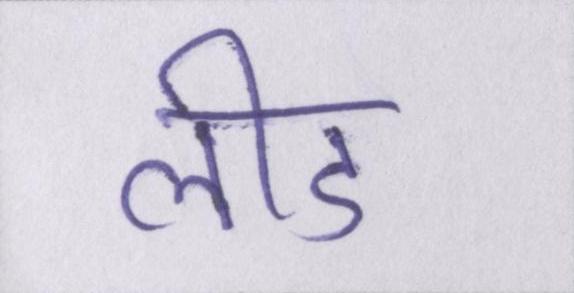 लीड